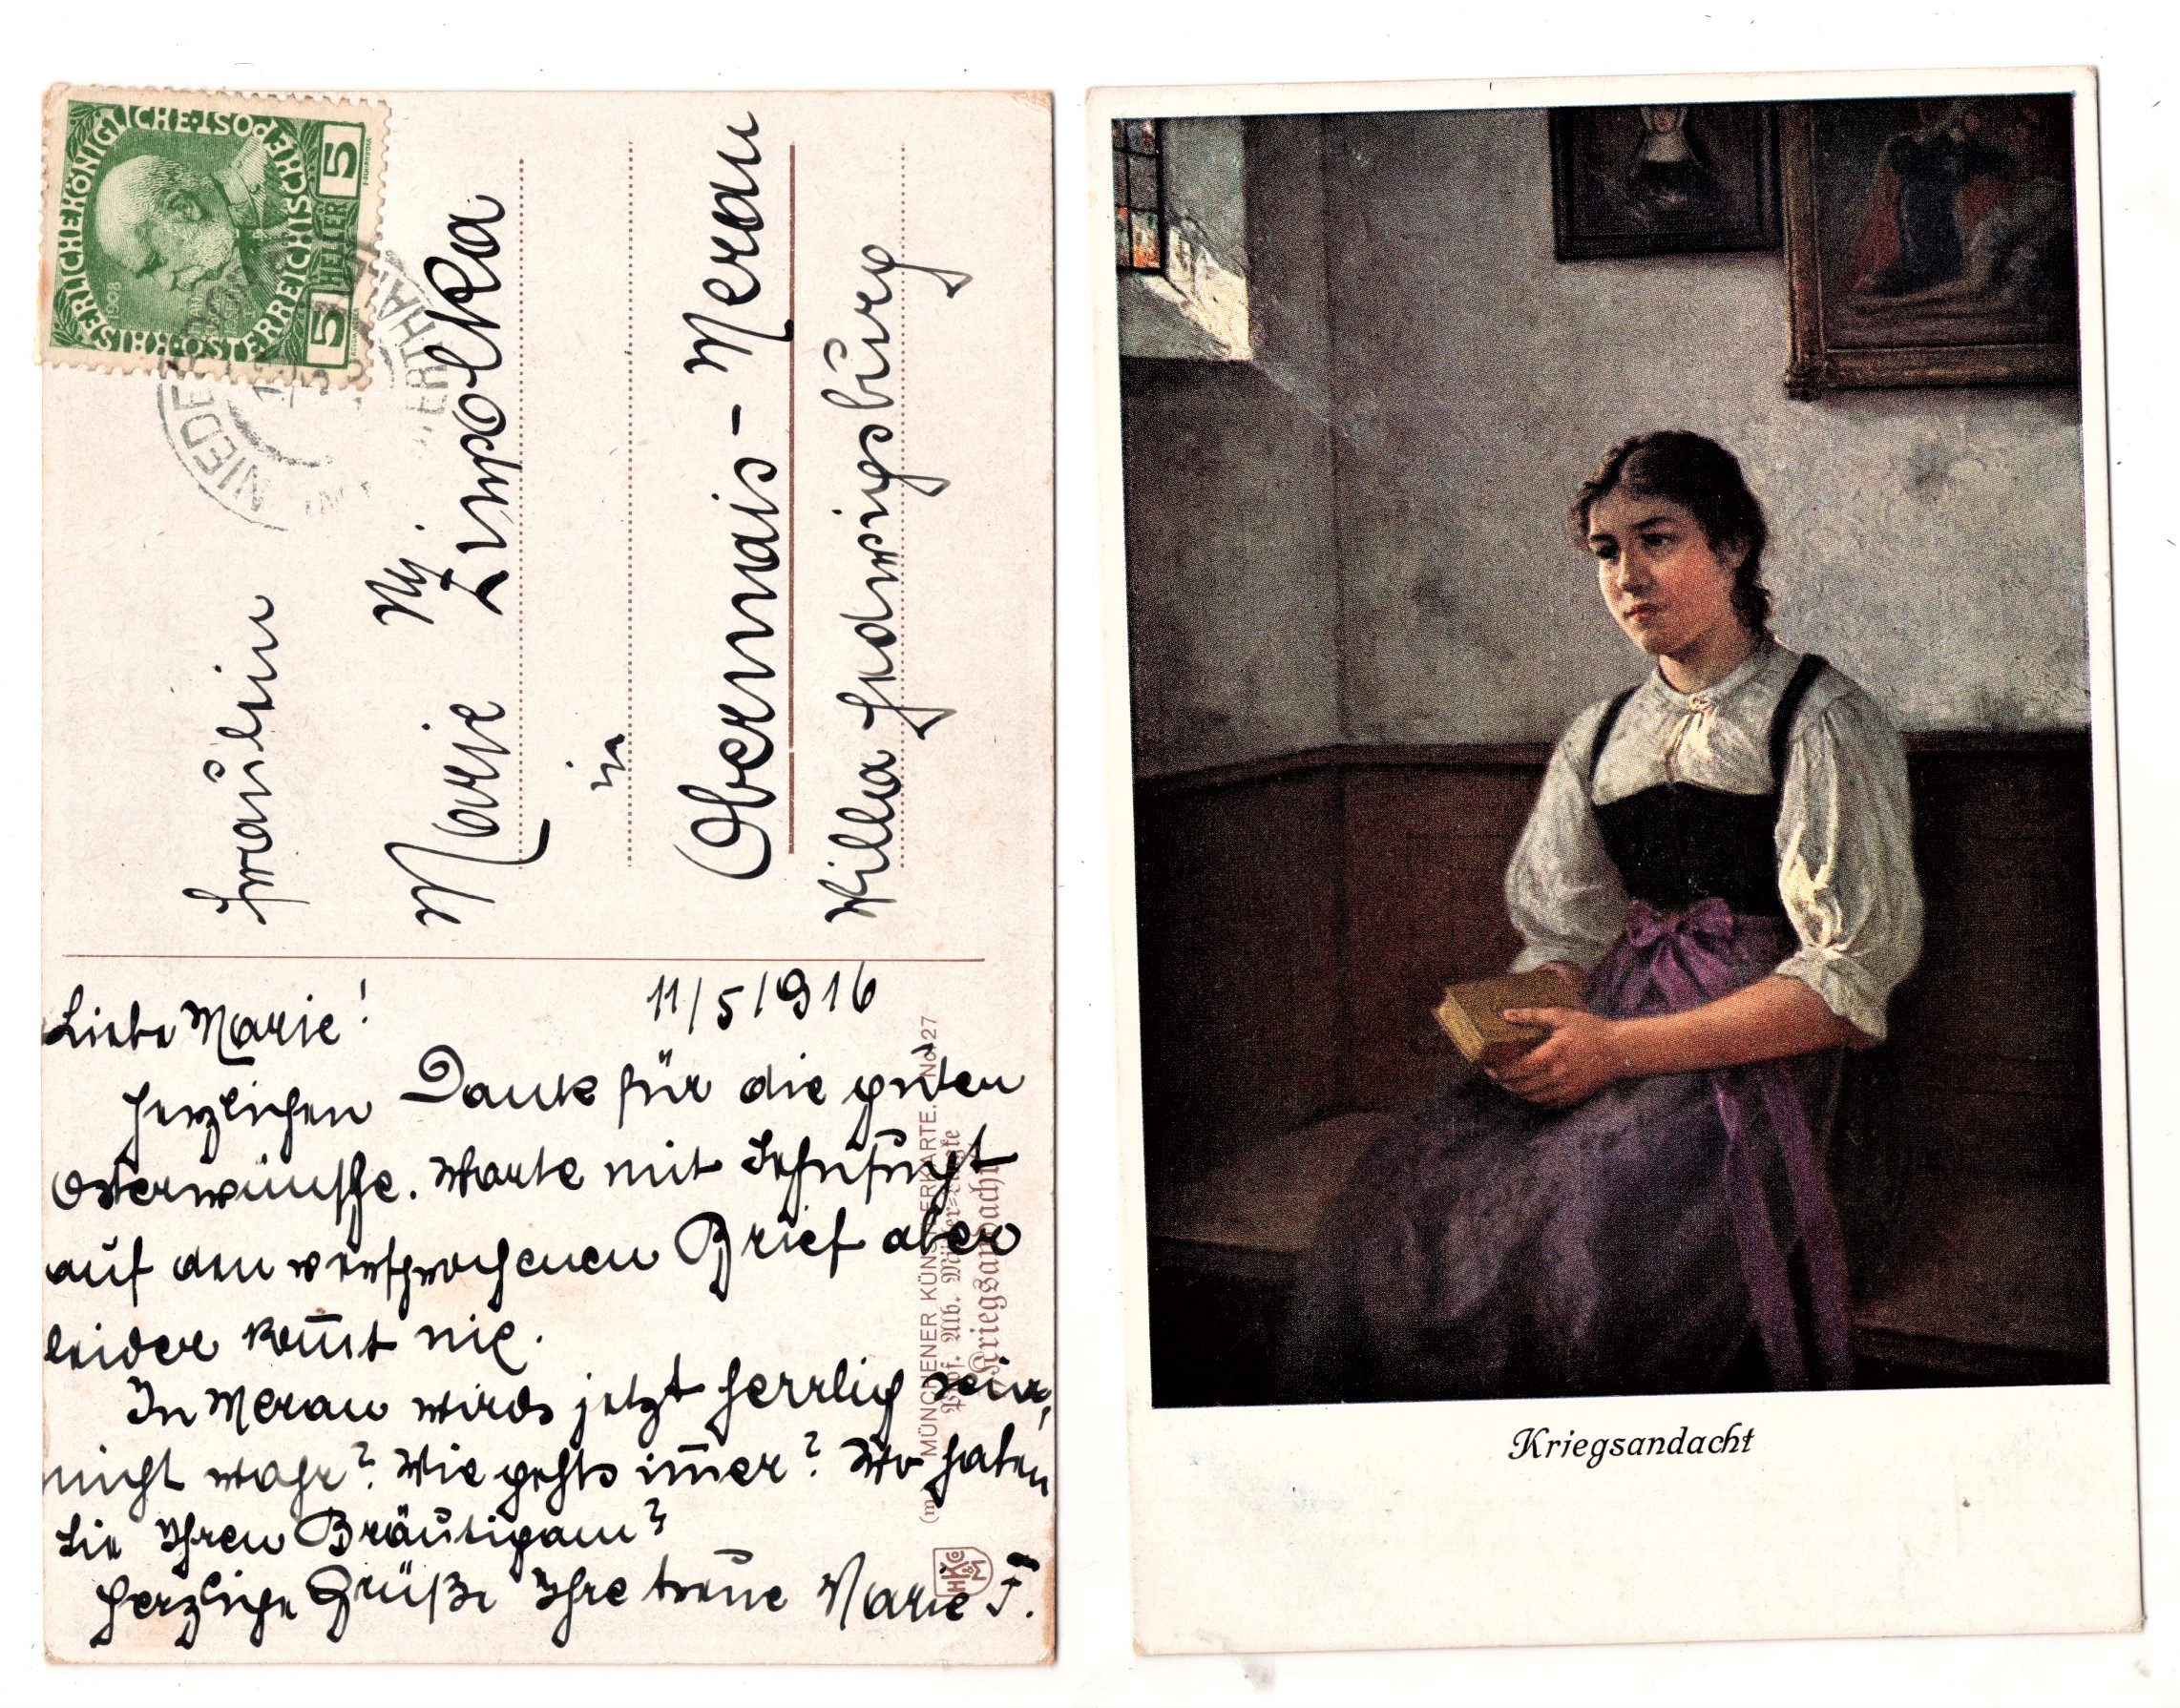 KAISERLICHE KÖNIGLICHE
ÖSTERREICHISCHE POST
5 HELLER 5
1908
NIEDER
Fräulein
Marie
in
Obermais - Meran
Villa Hedwigsburg
11/5/1916
Liebe Marie!
Herzlichen Dank für die guten
Osterwünsche. Warte mit Sehnsucht
auf den versprochenen Brief aber
leider kom̅t nie.
In Meran wirds jetzt herrlich sein,
nicht wahr? Wie gehts im̅er? Wo haben
Sie Ihren Bräutigam?
Herzliche Grüße Ihre treue Marie F.
MÜNCHENER KÜNSTLERKARTE. No. 27
Prof. Alb. Müller-Lingke
Kriegsandacht
Kriegsandacht